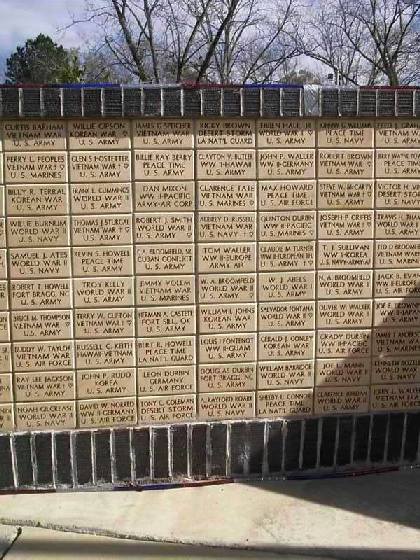 CURTIS BARHAM
VIETNAM WAR
U.S. ARMY
WILLIE GIPSON
KOREAN WAR
U.S. ARMY
JAMES G. SPICHER
VIETNAM WAR
U.S. ARMY
RICKY BROWN
DESERT STORM
LA NAT'L GUARD
WORLD WAR II
U.S. ARMY
PEACE TIME
U.S. NAVY
VIETNAM WAR
U.S. ARMY
PERRY L. PEOPLES
VIETNAM WAR
U.S. ARMY
GLEN S. HOSTETTER
VIETNAM WAR
U.S. ARMY
BILLIE RAY BERRY
PEACE TIME
U.S. ARMY
CLAYTON V. BUTLER
U.S. ARMY
JOHN F. WALLER
WW II-GERMANY
U.S. ARMY
ROBERT L. BROWN
VIETNAM WAR
U.S. ARMY
BILLY R. TERRAL
KOREAN WAR
U.S. ARMY
FRANK E. CUMMINGS
WORLD WAR II
U.S. ARMY
DAN MIXON
WW II-PACIFIC
ARMY-AIR CORP
CLARENCE TATE
VIETNAM WAR
U.S. MARINES
MAX HOWARD
PEACE TIME
U.S. ARMY
STEVE McCARTY
VIETNAM WAR
U.S. ARMY
DESERT STORM
U.S. ARMY
WILLIE BURNHUM
WORLD WAR II
U.S. NAVY
THOMAS J. STURGAL
VIETNAM WAR
U.S. ARMY
ROBERT J. SMITH
WORLD WAR II
U.S. ARMY
AUBREY D. RUSSELL
VIETNAM WAR
U.S. MARINES
QUINTON DURBIN
WW II-PACIFIC
U.S. ARMY
JOSEPH P. GRIFFIS
VIETNAM WAR
U.S. ARMY
VIETNAM WAR
U.S. ARMY
SAMUEL J. ATES
WORLD WAR II
U.S. NAVY
KEVIN S. HOWELL
PEACE TIME
U.S. ARMY
F.A. BLOOMFIELD, SR.
CUBAN CONFLICT
U.S. ARMY
TOM WALLER
WW II-EUROPE
ARMY AIR
CLAUDE M. TURNER
U.S. ARMY
T. F. SULLIVAN
WW II-KOREA
WORLD WAR II
U.S. ARMY
ROBERT T. HOWELL
FORT BRAGG, NC
U.S. ARMY
TROY KELLY
WORLD WAR II
U.S. ARMY
JIMMY YOCUM
VIETNAM WAR
U.S. MARINES
W. A. BROOMFIELD
WORLD WAR II
U.S. ARMY
W. J. ABELS
WORLD WAR II
U.S. NAVY
N. A. BROOMFIELD
WORLD WAR II
U.S. ARMY
WORLD WAR II
BRICE M. THOMPSON
VIETNAM WAR
U.S. ARMY
TERRY W. CLIFTON
VIETNAM WAR
U.S. ARMY
HERMAN A. CASTETE
FORT SILL, OK
U.S. ARMY
WILLIAM L. JOHNS
KOREAN WAR
U.S. ARMY
SALVADOR FONTANA
WORLD WAR II
U.S. ARMY
OLIVER W. WALLER
WORLD WAR II
U.S. ARMY
U.S. ARMY
BUDDY W. TAYLOR
VIETNAM WAR
U.S. AIR FORCE
RUSSELL C. KEITH
VIETNAM WAR
U.S. ARMY
BERT R. HOWELL
PEACE TIME
LA NAT'L GUARD
LOUIS J. FONTENOT
WW II-GUAM
U.S. ARMY
GERALD J. CONLEY
KOREAN WAR
U.S. ARMY
GRADY DURBIN
U.S. ARMY
VIETNAM WAR
U.S. ARMY
RAY LEE JACKSON
U.S. ARMY
JOHN P. RUDD
KOREA
U.S. ARMY
LEON DURBIN
GERMANY
U.S. AIR FORCE
DOUGLAS DURBIN
FORT BRAGG, NC
U.S. ARMY
WILLIAM BARRON
WORLD WAR II
U.S. ARMY
JOE L. MANN
WORLD WAR II
U.S. NAVY
WORLD WAR II
U.S. ARMY
NOAH GILCREASE
WORLD WAR II
U.S. NAVY
DAVID W. MCLURED
WW II-GERMANY
U.S. AIR FORCE
TONY C. COLEMAN
DESERT STORM
U.S. ARMY
RAYFORD ROARK
WORLD WAR II
U.S. NAVY
SHELBY E. CONNOR
PEACE TIME
LA NAT'L GUARD
CLARENCE
WORLD WAR II
U.S. ARMY
WORLD WAR II
U.S. AIR FORCE